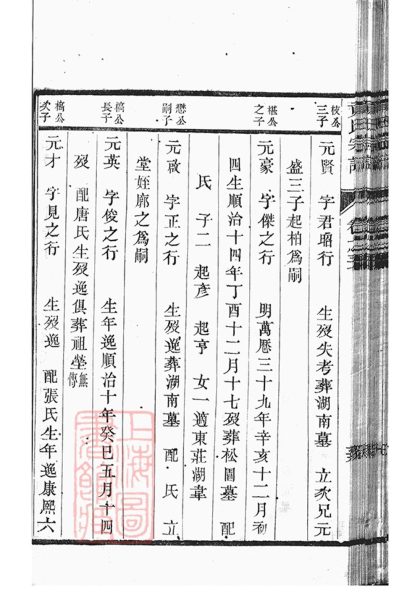 三子
元賢 字君昭行 生歿失考葬湖南墓 立次兄元
盛三子起柏爲嗣
之子
元豪 字傑之行 明萬曆三十九年辛亥十二月初
四生順治十四年丁酉十二月十七歿葬松園墓 配
氏 子二 起彥 起亨 女一適東莊湖韋
懋公
嗣子
元啟 字正之行 生歿逸葬湖南墓 配 氏 立
堂姪廓之爲嗣
長子
元英 字俊之行 生年逸順治十年癸巳五月十四
歿 配唐氏生歿逸俱葬祖塋無傳
次子
元才 字見之行 生歿逸 配張氏生年逸康熙六
上海圖書館藏